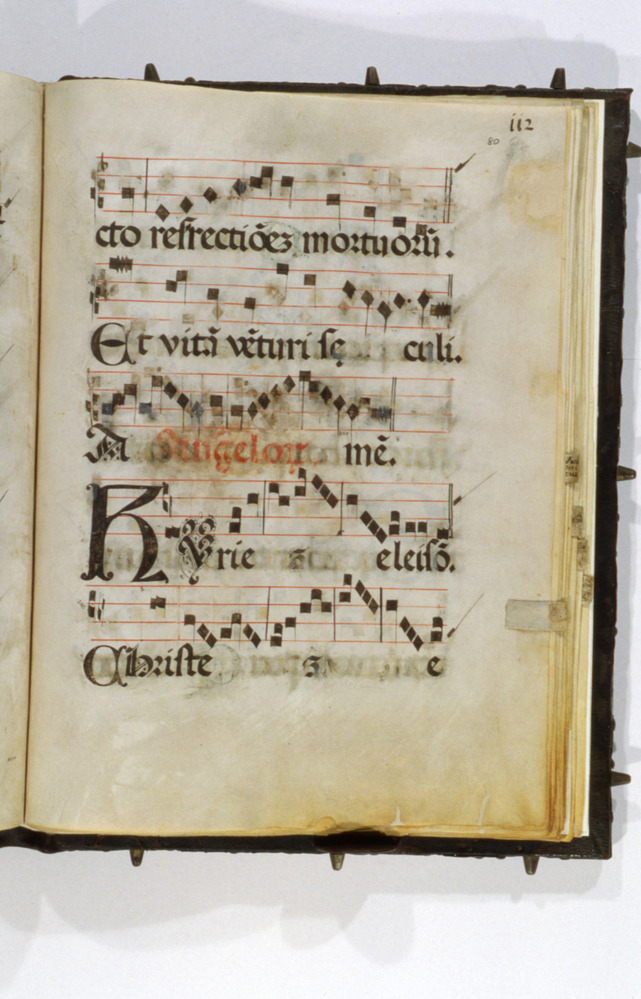 112
80
cto resrectiōeƷ mortuoꝝ̄.
Et vitā vēturi sę culi.
A Angeloꝝ mē.
Kyrie Ʒ eleisō.
Christe Ʒ e